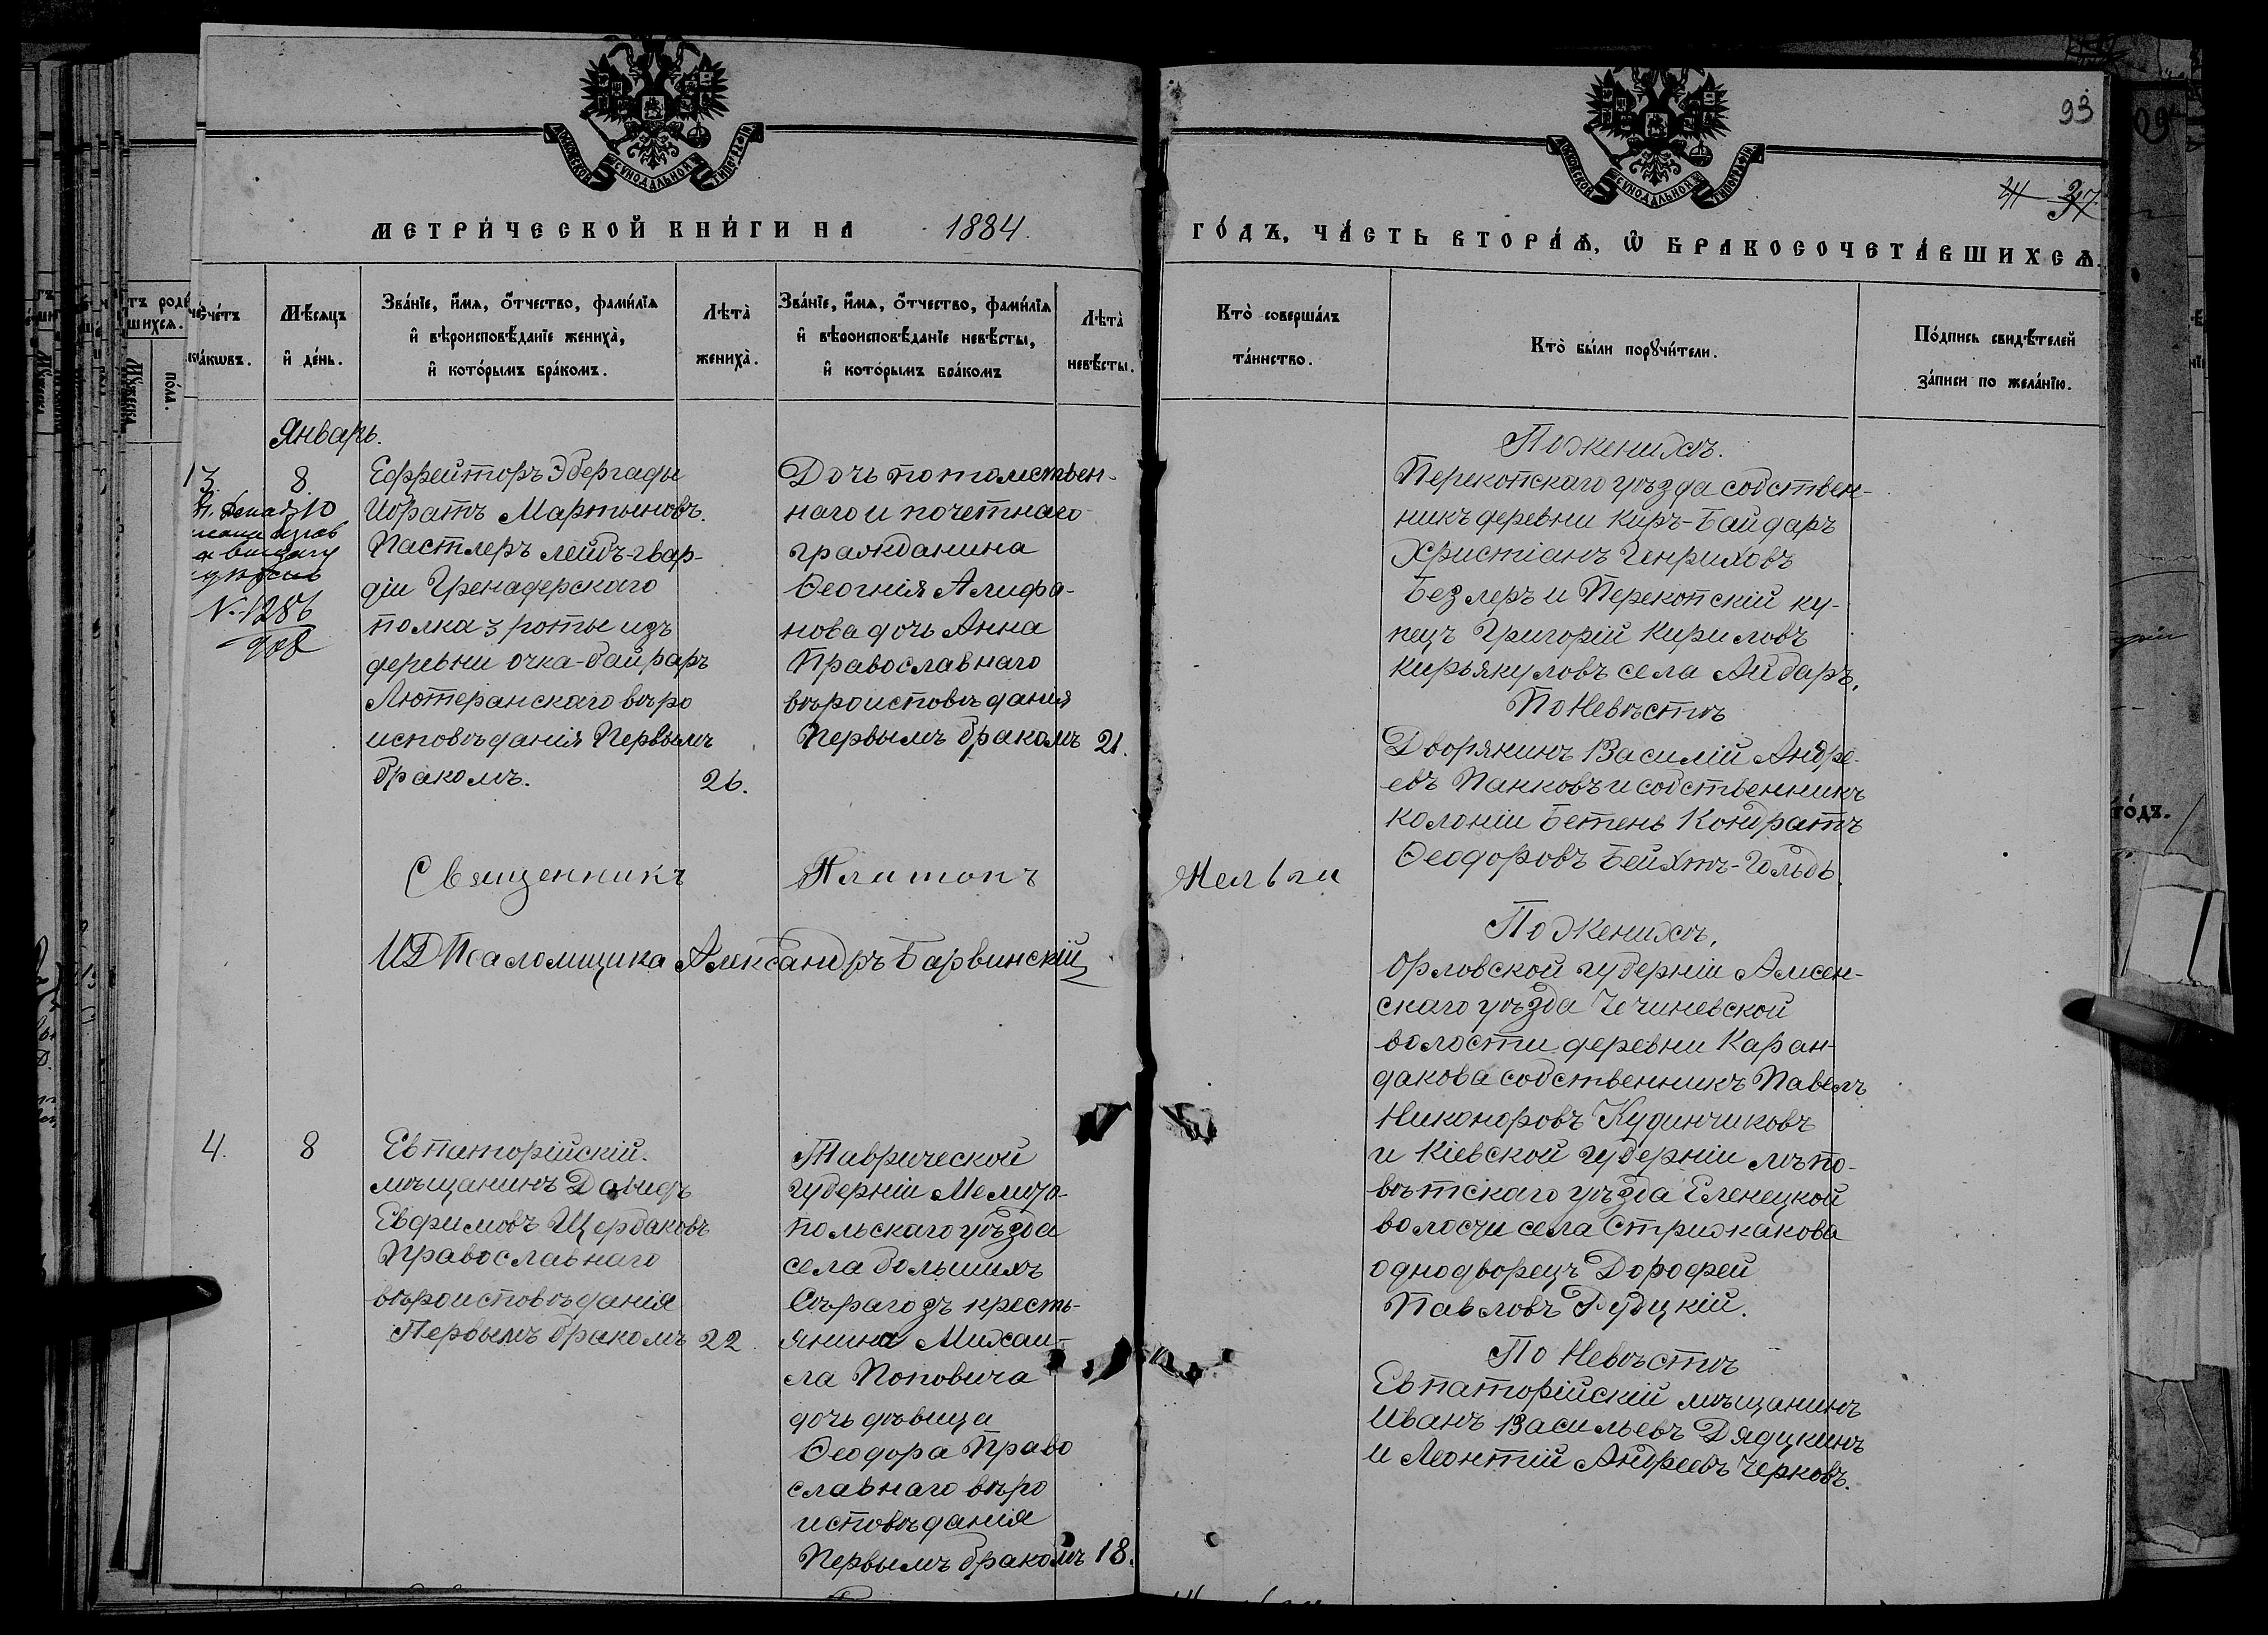 93
37
МЕТРИ́ЧЕСКОЙ КНИ́ГИ НА 1884.
ГО́ДЪ, ЧА́СТЬ ВТОРА́Ѧ, Ѽ БРАКОСОЧЕТА́ВШИХСѦ.
Мѣ́сяцъ
и҆ де́нь.
Зва́нїе, и҆́мѧ, ѻ҆́тчество, фами́лїѧ
и҆ вѣроисповѣ́данїе жениха̀,
и҆ кото́рымъ бра́комъ.
Лѣта̀
жениха̀.
Зва́нїе, и҆́мѧ, ѻ҆́тчество, фами́лїѧ
и҆ вѣроисповѣ́данїе невѣ́сты,
и҆ кото́рымъ бра́комъ
Лѣта̀
невѣ́сты.
Кто̀ соверша́лъ
та́инство.
Кто̀ бы́ли порꙋчи́тели.
По́дпись свидѣ́телей
за́писи по жела́нїю.
Январь.
3.
8.
№ 1286
908
Ефрейторъ Эбергады
Ибратъ Мартыновъ.
Пастлеръ лейбъ-гвар-
діи Гренадерскаго
полка 3 роты изъ
деревни очка-байраръ
Лютеранскаго вѣро
исповѣданія Первымъ
бракомъ.
26.
Дочь потомствен-
наго и почетнаго
гражданина
Ѳеогнія Алифа-
нова дочь Анна
Православнаго
вѣроисповѣданія
Первымъ бракомъ
21.
По женихѣ.
Перекопскаго уѣзда собствен-
никъ деревни Киръ-Байдаръ
Христіанъ Генриховъ
Безлеръ и Перекопскій ку-
пецъ Григорій Кириловъ
Кирьякуловъ села Айбаръ.
По Невѣстѣ
Дворянинъ Василій Андре-
евъ Панковъ и собственникъ
колоніи Бетень Кондратъ
Ѳеодоровъ Бейхтъ-Гольдъ.
Священникъ Платонъ
ИД Псаломщика Александръ Барвинскій
4.
8
Евпаторійскій
мѣщанинъ Давидъ
Евфимовъ Щербаковъ
Православнаго
вѣроисповѣданія
Первымъ бракомъ
22.
Таврической
губерніи Мелито-
польскаго уѣзда
села большихъ
Сѣрагозъ кресть-
янина Михаи-
ла Поповича
дочь дѣвица
Ѳеодора Право
славнаго вѣро
исповѣданія
Первымъ бракомъ
18.
По Женихѣ,
Орловской губерніи Амсен-
скаго уѣзда Чечиневской
волости деревни Каран-
дакова собственникъ Павелъ
Никоноровъ Кудинчиковъ
и Кіевской губерніи мѣпо-
вѣтскаго уѣзда Еленецкой
волости села Стрижакова
однодворецъ Дорофей
Павловъ Рудцкій.
По Невѣстѣ
Евпаторійскій мѣщанинъ
Иванъ Васильевъ Дядцкинъ
и Леонтій Андреевъ Черковъ.